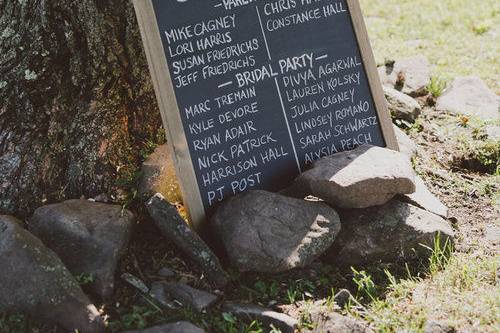 PAREN
MIKE CAGNEY
LORI HARRIS
SUSAN FRIEDRICHS
JEFF FRIEDRICHS
CHRIS HALL
CONSTANCE HALL
—BRIDAL PARTY—
MARC TREMAIN
KYLE DEVORE
RYAN ADAIR
NICK PATRICK
HARRISON HALL
PJ POST
DIVYA AGARWAL
LAUREN KOLSKY
JULIA CAGNEY
LINDSEY ROMANO
SARAH SCHWARTZ
ALYSIA PEACH